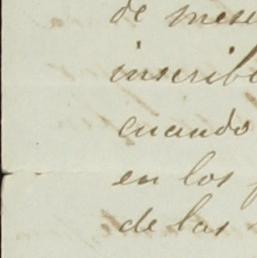 de mese
inscribe
cuando
en los
de las